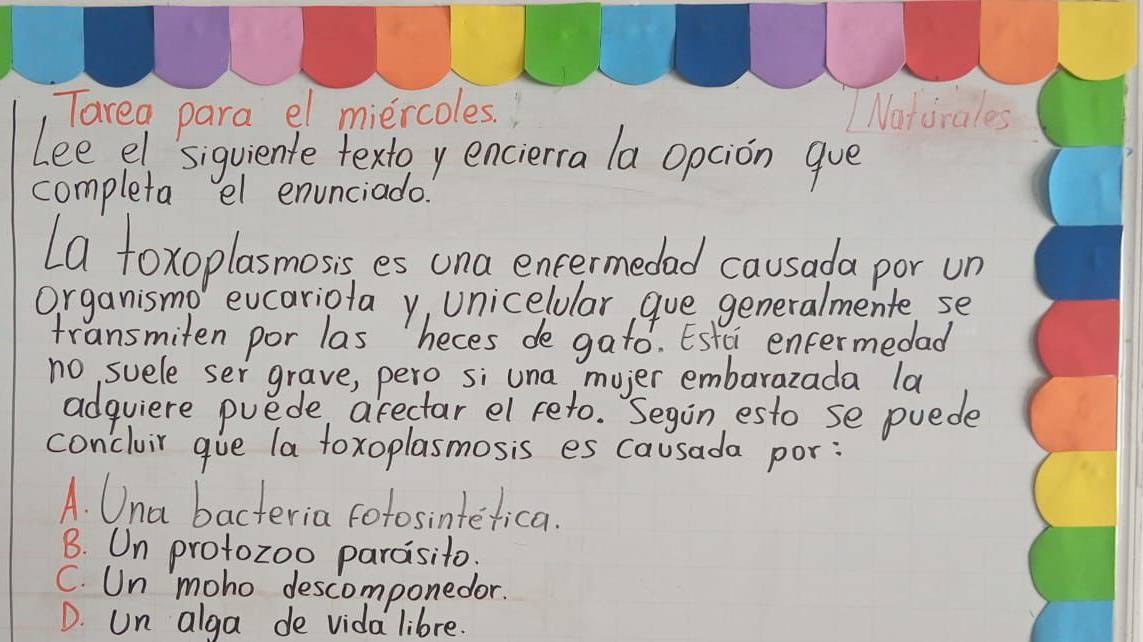 Tarea para el miércoles.
Naturales
Lee el siguiente texto y encierra la opción que
completa el enunciado.
La toxoplasmosis es una enfermedad causada por un
Organismo eucariota y unicelular que generalmente se
transmiten por las heces de gato. Está enfermedad
no suele ser grave, pero si una mujer embarazada la
adquiere puede afectar el feto. Según esto se puede
concluir que la toxoplasmosis es causada por:
A. Una bacteria fotosintética.
B. Un protozoo parásito.
C. Un moho descomponedor.
D. Un alga de vida libre.